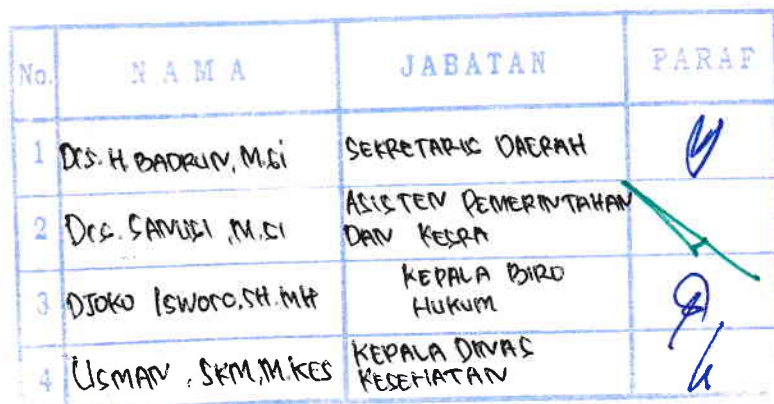 No. NAMA JABATAN PARAF
1 Drs. H. BADRUN, M.Si SEKRETARIS DAERAH
2 Drs. SANUSI, M.Si ASISTEN PEMERINTAHAN
DAN KESRA
3 DJOKO ISWORO, SH. MH KEPALA BIRO
HUKUM
4 USMAN, SKM, M.KES KEPALA DINAS
KESEHATAN